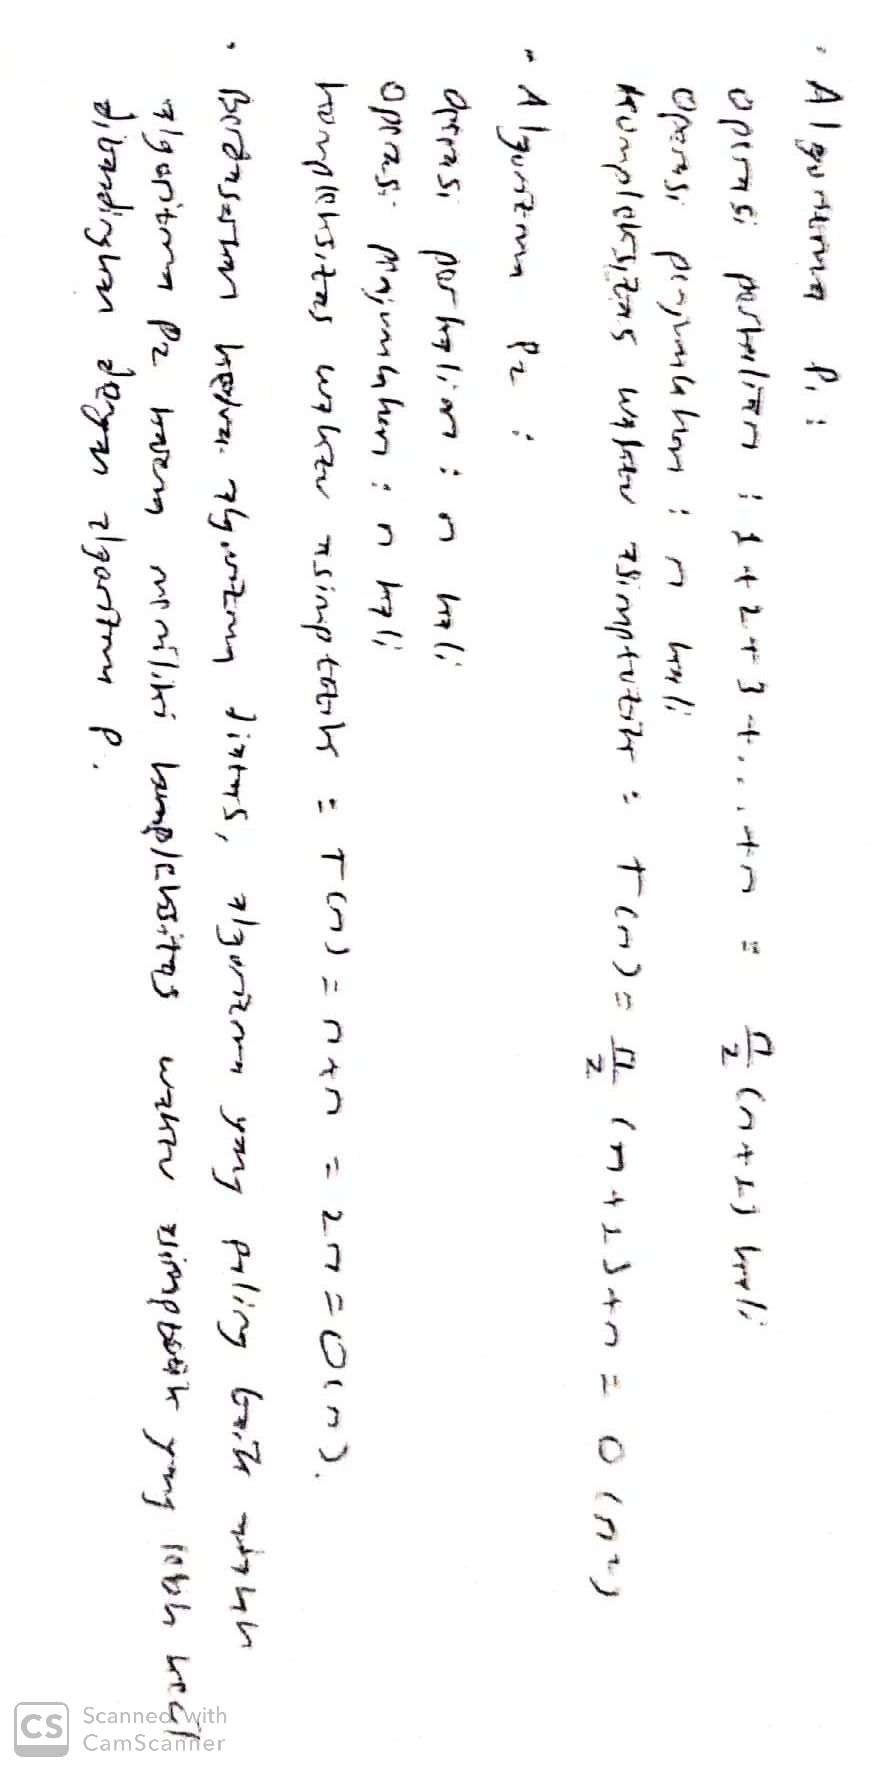 • Algoritma P1 :
Operasi perkalian : 1 + 2 + 3 + ... + n = n/2 (n + 1) kali
Operasi penjumlahan : n kali
Kompleksitas waktu asimptotik : T(n) = n/2 (n + 1) + n = O(n²)
• Algoritma P2 :
Operasi perkalian : n kali
Operasi penjumlahan : n kali
kompleksitas waktu asimptotik : T(n) = n + n = 2n = O(n).
• Berdasarkan kedua algoritma diatas, algoritma yang paling baik adalah
algoritma P2 karena memiliki kompleksitas waktu asimptotik yang lebih kecil
dibandingkan dengan algoritma P.
CS Scanned with
CamScanner